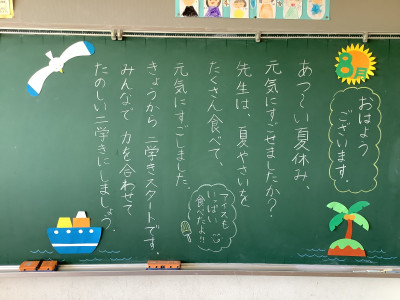 8月
おはよう
ございます。
あつ〜い夏休み、
元気にすごせましたか？
先生は、夏やさいを
たくさん食べて、
元気にすごしました。
きょうから 二学きスタートです。
みんなで 力を合わせて
たのしい二学きにしましょう。
アイスも
いっぱい
食べたよ!!